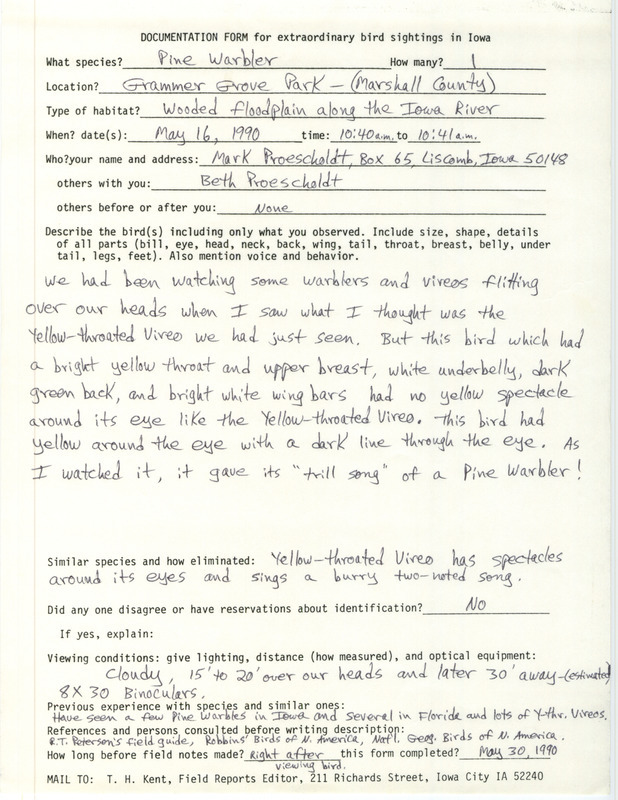 DOCUMENTATION FORM for extraordinary bird sightings in Iowa
What species? Pine Warbler How many? 1
Location? Grammer Grove Park - (Marshall County)
Type of habitat? Wooded floodplain along the Iowa River
When? date(s): May 16, 1990 time: 10:40 a.m. to 10:41 a.m.
Who? your name and address: Mark Proescholdt, Box 65, Liscomb, Iowa 50148
others with you: Beth Proescholdt
others before or after you: None
Describe the bird(s) including only what you observed. Include size, shape, details
of all parts (bill, eye, head, neck, back, wing, tail, throat, breast, belly, under
tail, legs, feet). Also mention voice and behavior.
We had been watching some warblers and vireos flitting
over our heads when I saw what I thought was the
Yellow-throated Vireo we had just seen. But this bird which had
a bright yellow throat and upper breast, white underbelly, dark
green back, and bright white wing bars had no yellow spectacle
around its eye like the Yellow-throated Vireo. This bird had
yellow around the eye with a dark line through the eye. As
I watched it, it gave its "trill song" of a Pine Warbler!
Similar species and how eliminated: Yellow-throated Vireo has spectacles
around its eyes and sings a burry two-noted song.
Did any one disagree or have reservations about identification? No
If yes, explain:
Viewing conditions: give lighting, distance (how measured), and optical equipment:
Cloudy, 15' to 20' over our heads and later 30' away-(estimated)
8X30 Binoculars.
Previous experience with species and similar ones:
Have seen a few Pine Warbles in Iowa and several in Florida and lots of Y-thr. Vireos.
References and persons consulted before writing description:
R.T. Peterson's field guide, Robbins' Birds of N. America, Nat'l. Geog. Birds of N. America.
How long before field notes made? Right after this form completed? May 30, 1990
viewing bird.
MAIL TO: T. H. Kent, Field Reports Editor, 211 Richards Street, Iowa City IA 52240